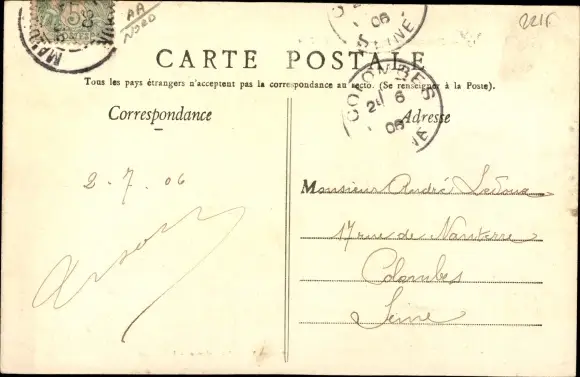 5c
AA
NORD
221F
CARTE POSTALE
Tous les pays étrangers n'acceptent pas la correspondance au recto. (Se renseigner à la Poste).
COLOMBES
SEINE
06
COLOMBES
2 6
06
Correspondance
Adresse
2-7.06
Monsieur André Ledoux
17 rue de Nanterre
Colombes
Seine